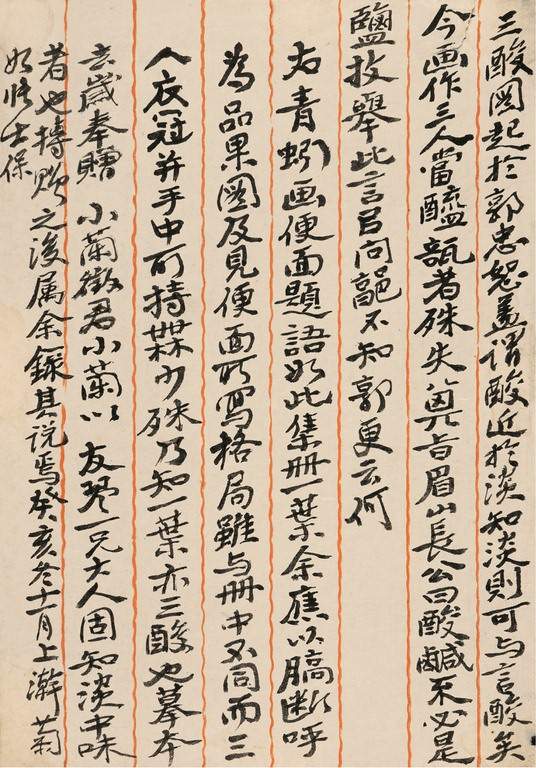 三酸圖起於郭忠恕蓋謂酸近於淡知淡則可与言酸矣
今画作三人當醯瓿者殊失薁旨眉山長公曰酸鹹不必是
鹽放舉此言已向郶不知郭更云何
右青蚓画便面題語如此集册一葉余應以臆斷呼
為品果圖及見便面所寫格局雖与册中不同而三
人衣冠并手中所持無少殊乃知一葉亦三酸也摹本
去歲奉贈 小蘭徵君小蘭以 友琴一兄大人固知淡中味
者也摶贻之後属余錄其説焉癸亥冬十一月上澣菊
如悟士保